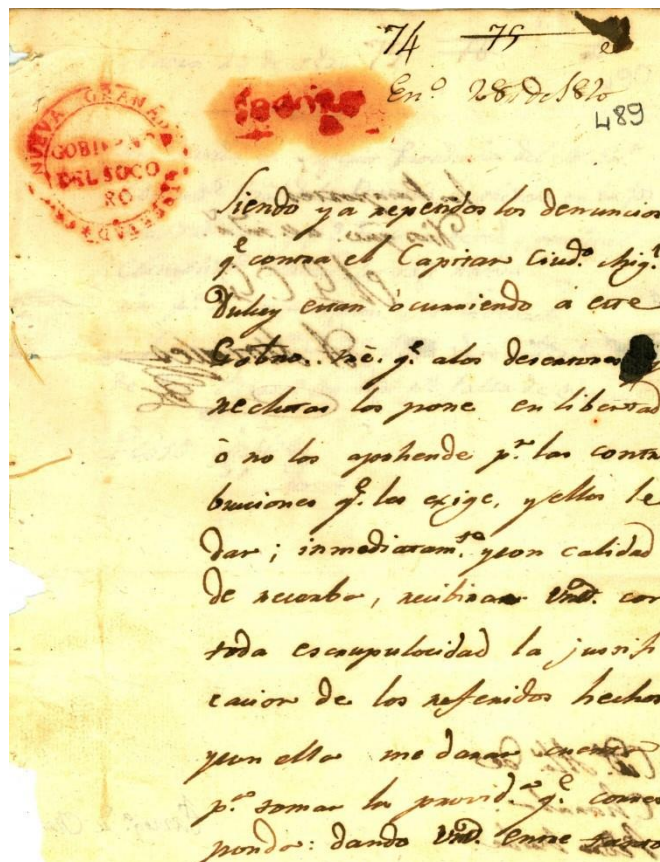 74 75
En.º 28 de 1820
489
NUEVA GRANADA
GOBIERNO
DEL SOCO
RO
Siendo ya repetidos los denuncios
q.e contra el Capitan Ciud.º Mig.l
estan ocurriendo á este
Gobno. q.e a los desertores y
reclutas los pone en libertad
ó no los aprhende p.r las contri
buciones q.e les exige, y ellos le
dan; inmediatam.te y con calidad
de recerba, recibiran Vmd. con
toda escrupulocidad la justifi
cacion de los referidos hechos
y con ella me daran cuenta
p.a tomar la provid.a q.e corres
ponda: dando Vmd. entre tanto